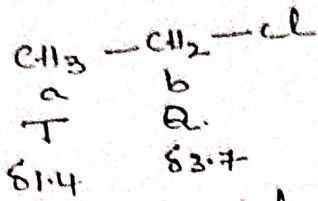 CH3 — CH2 — Cl
a b
T Q.
δ1.4 δ3.7